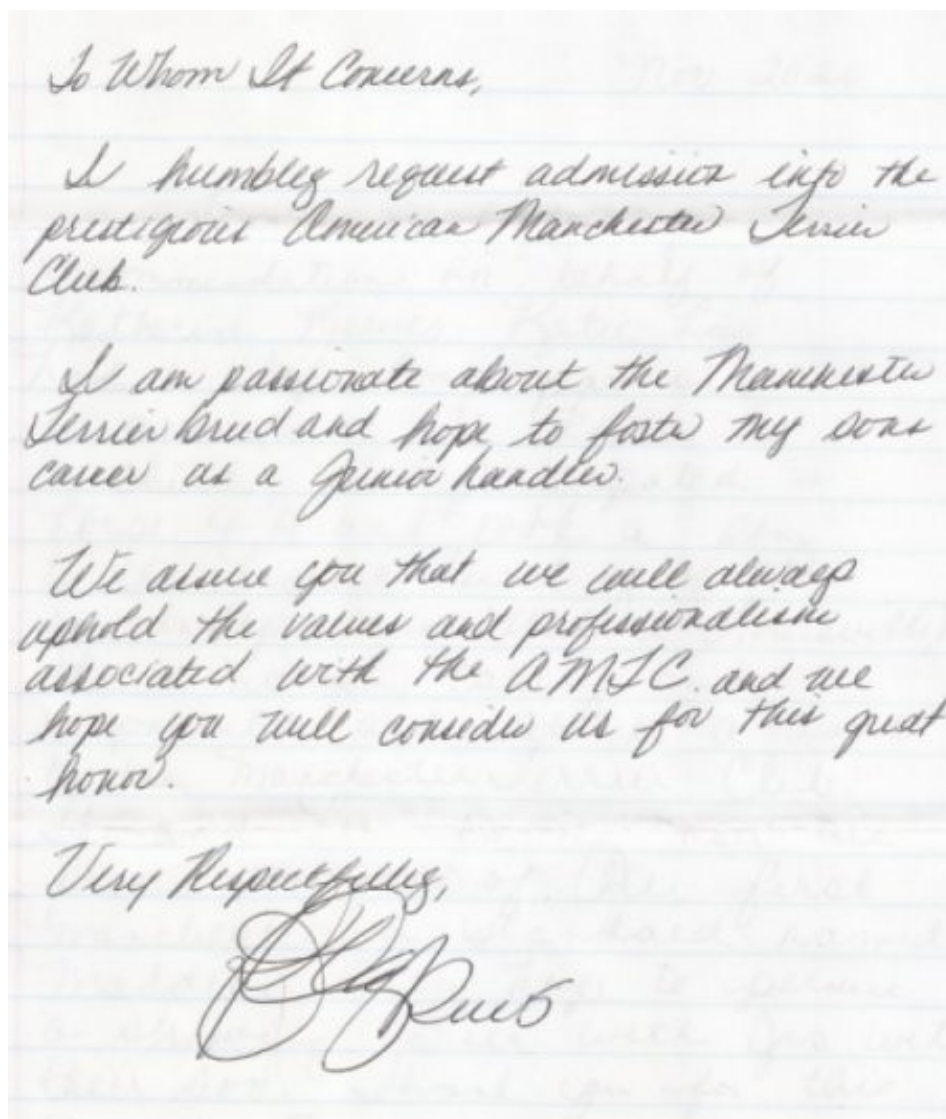 To Whom It Concerns,
I humbly request admission into the
prestigious American Manchester Terrier
Club.
I am passionate about the Manchester
Terrier breed and hope to foster my sons
career as a Junior handler.
We assure you that we will always
uphold the values and professionalism
associated with the AMTC and we
hope you will consider us for this great
honor.
Very Respectfully,